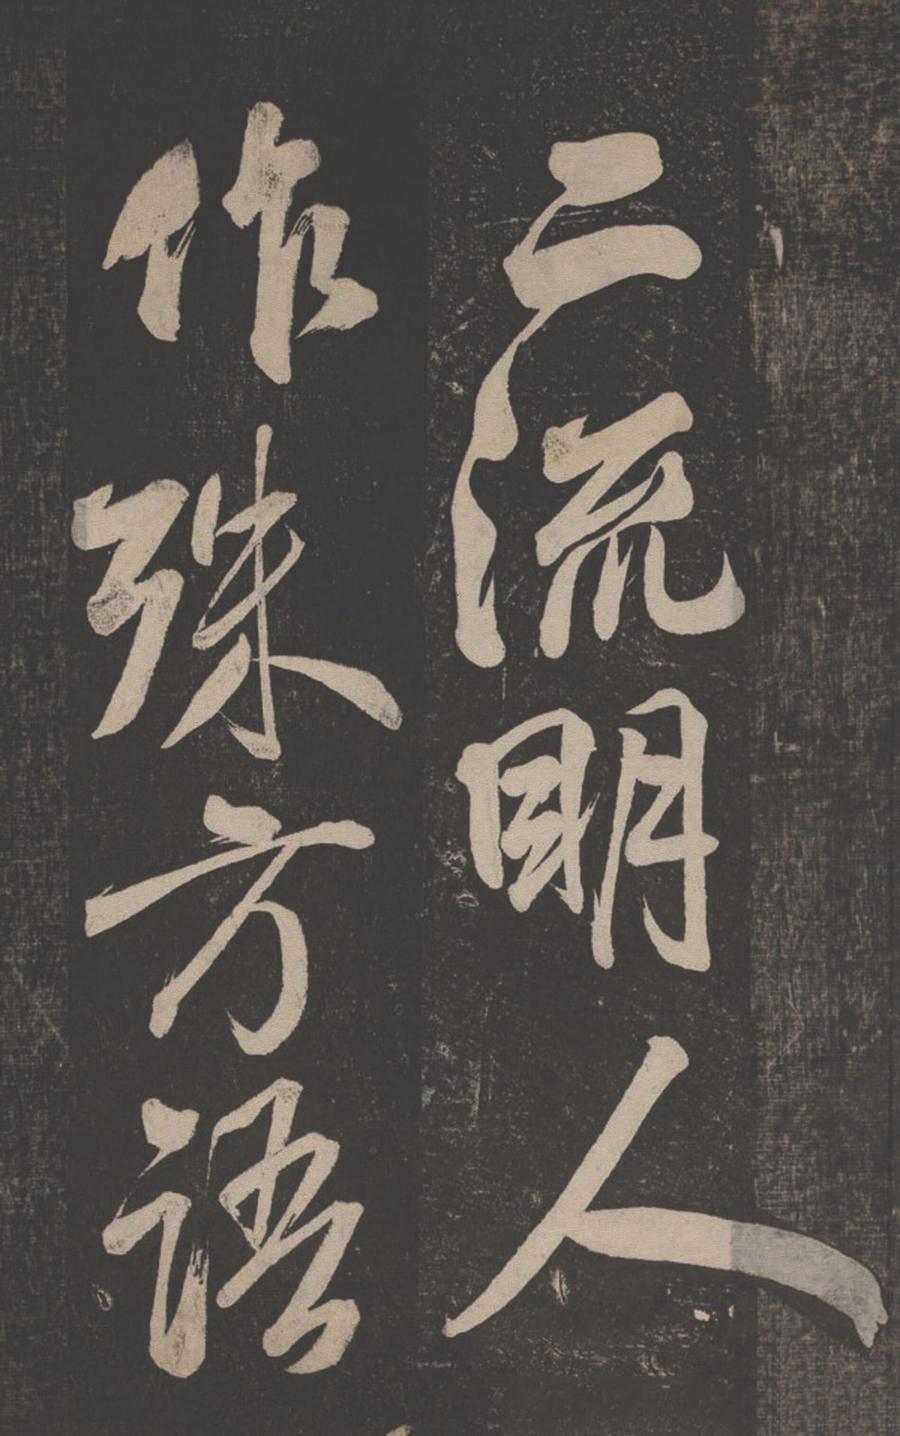 二流明人
作殊方語